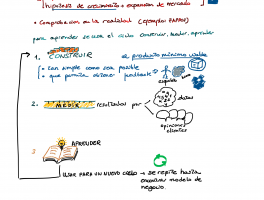 hipótesis de crecimiento → expansión de mercado
• Comprobación en la realidad (ejemplo: ZAPPOS)
para aprender se usa el ciclo construir, medir, aprender
1. CONSTRUIR el producto mínimo viable
• tan simple como sea posible
• que permita obtener feedback
2. MEDIR resultados por datos
opiniones clientes
3 APRENDER
USAR PARA UN NUEVO CICLO → se repite hasta
encontrar modelo de
negocio.